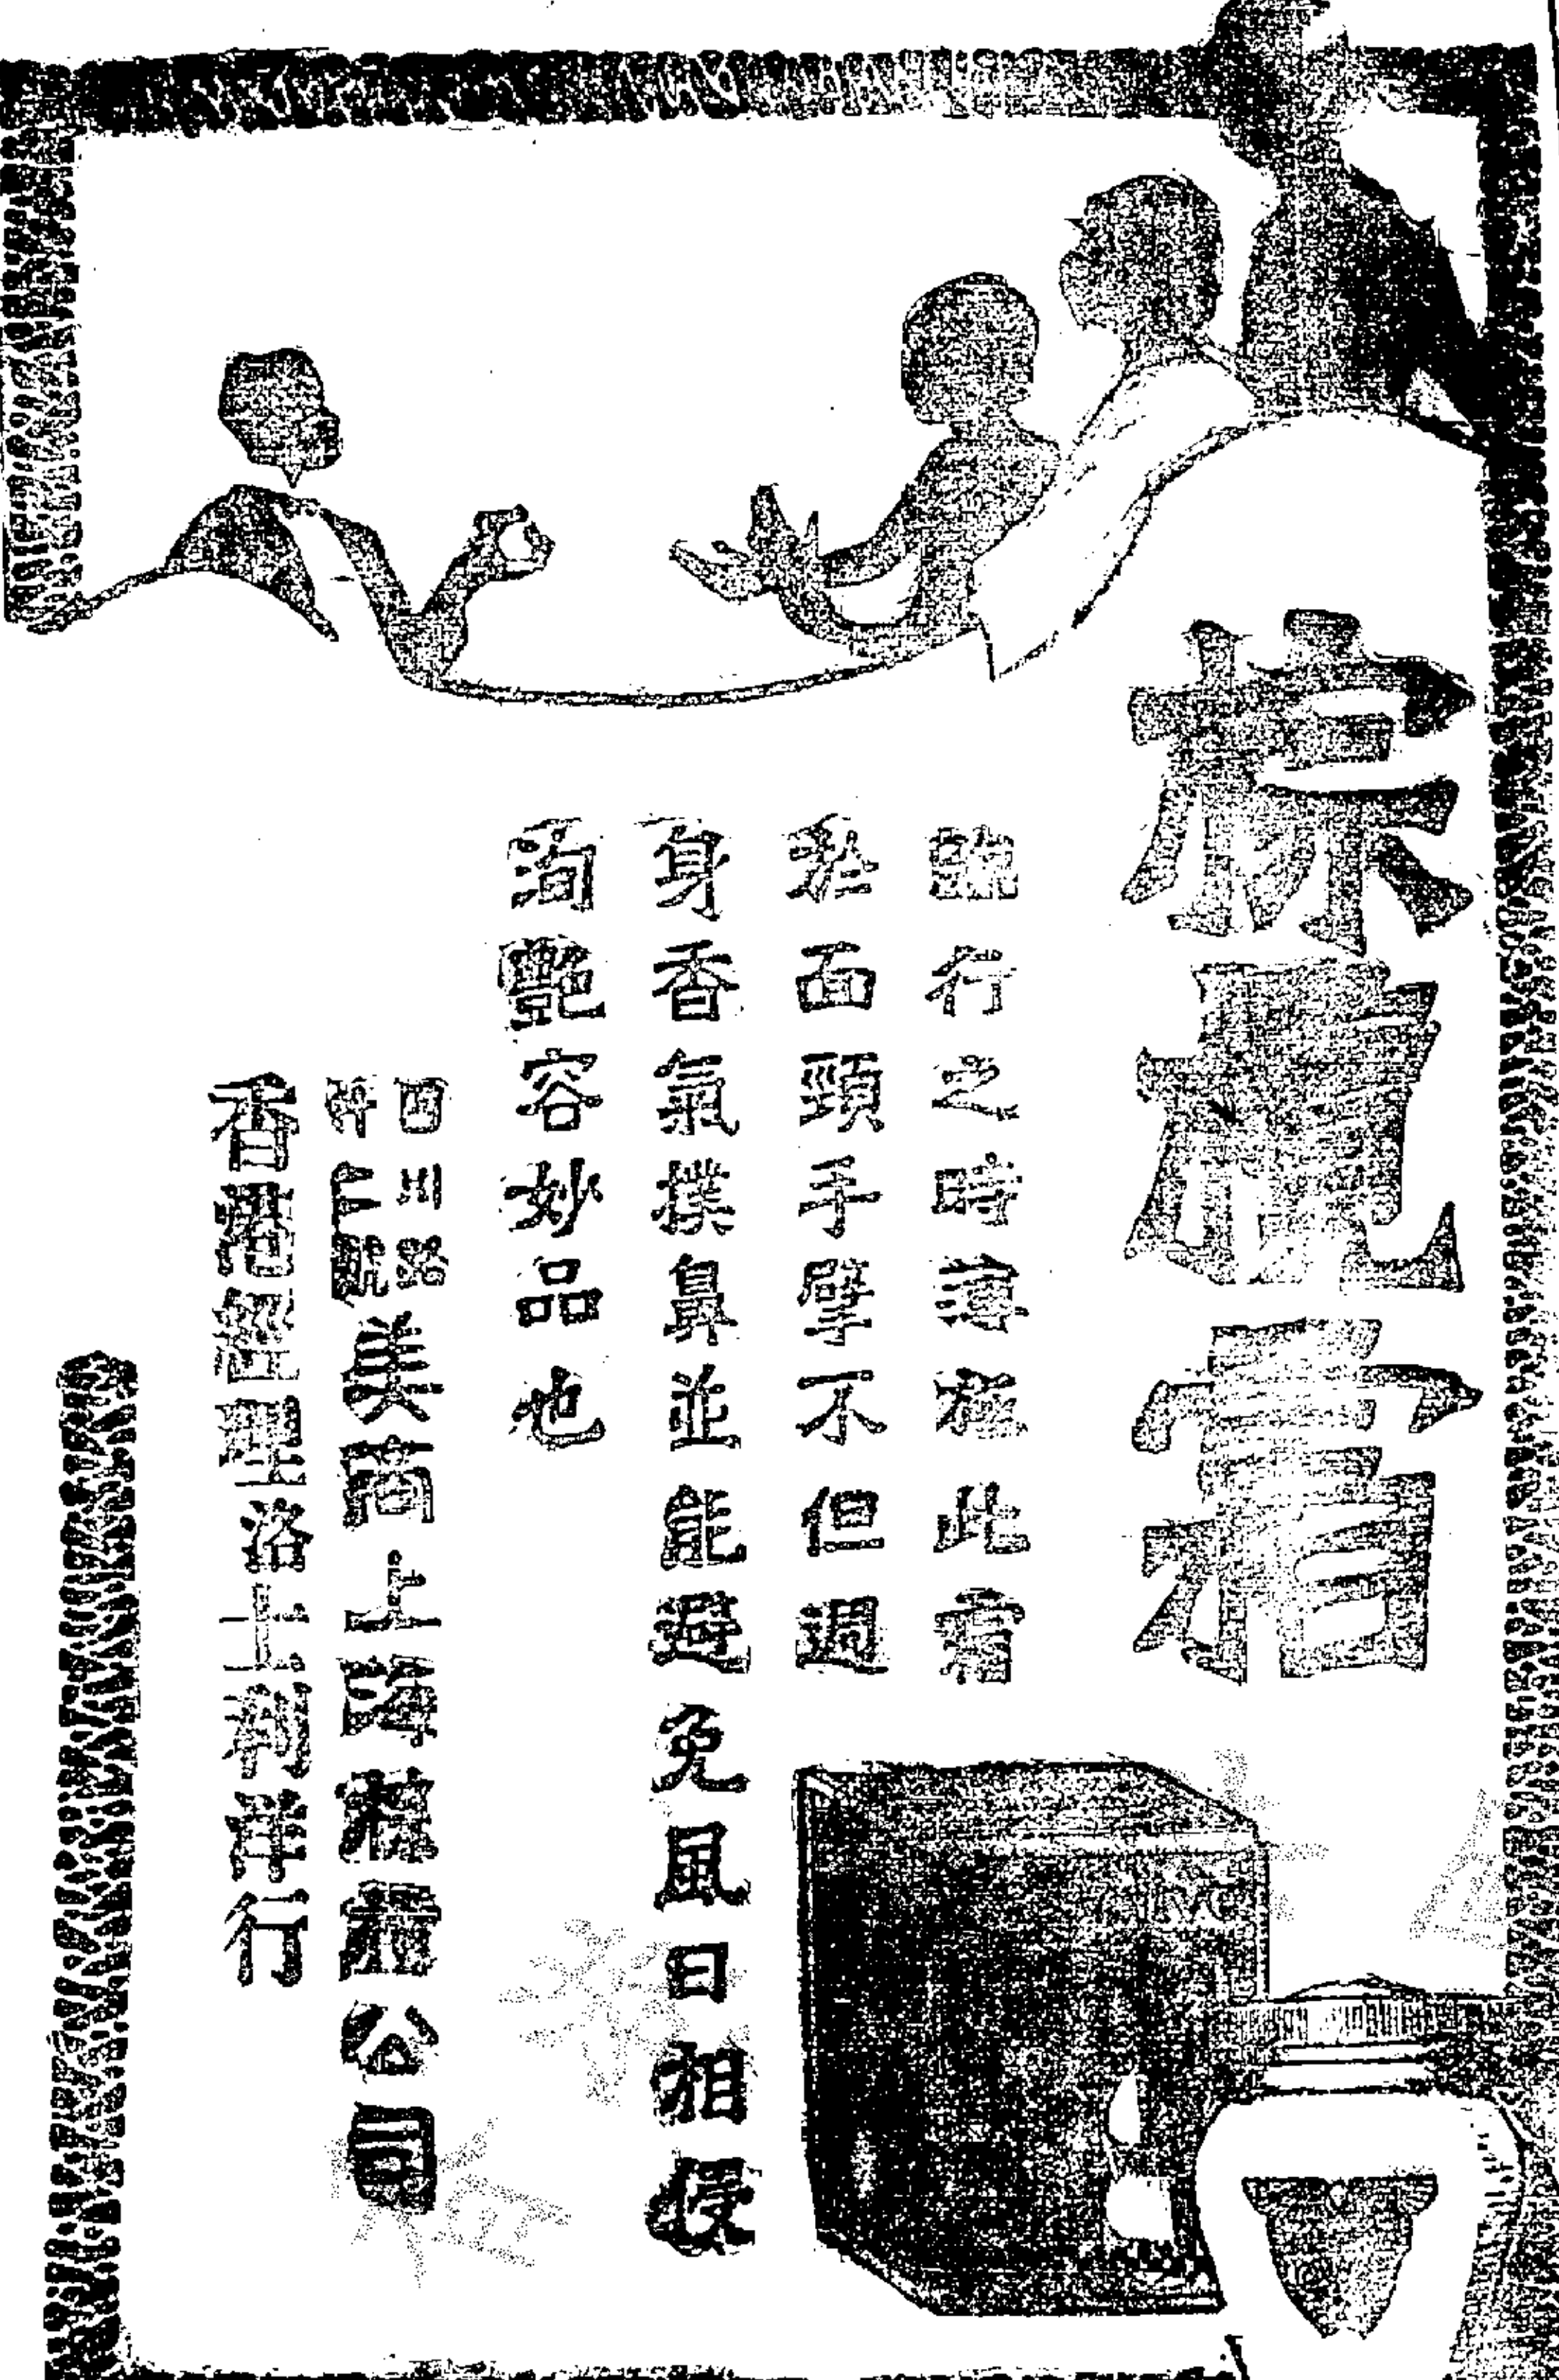 棕欖霜
臨行之時薄施此霜
於面頸手擘不但週
身香氣撲鼻並能避免風日相侵
洵艷容妙品也
四川路
號
美商上海棕欖公司
香港經理洛士利洋行